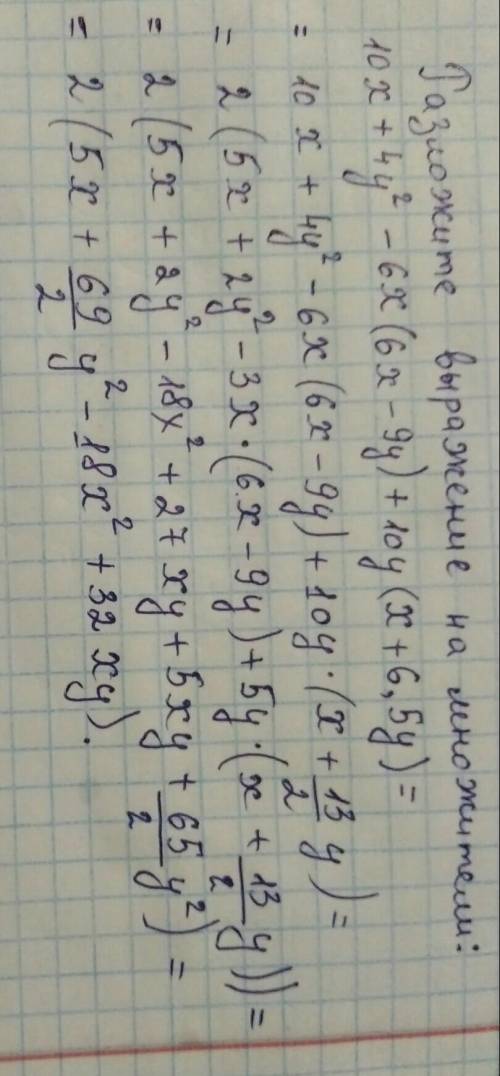 Разложите выражение на множители:
10x + 4y² - 6x(6x - 9y) + 10y(x + 6,5y) =
= 10x + 4y² - 6x(6x - 9y) + 10y·(x + 13/2 y) =
= 2(5x + 2y² - 3x·(6x - 9y) + 5y·(x + 13/2 y))) =
= 2(5x + 2y² - 18x² + 27xy + 5xy + 65/2 y²) =
= 2(5x + 69/2 y² - 18x² + 32xy).